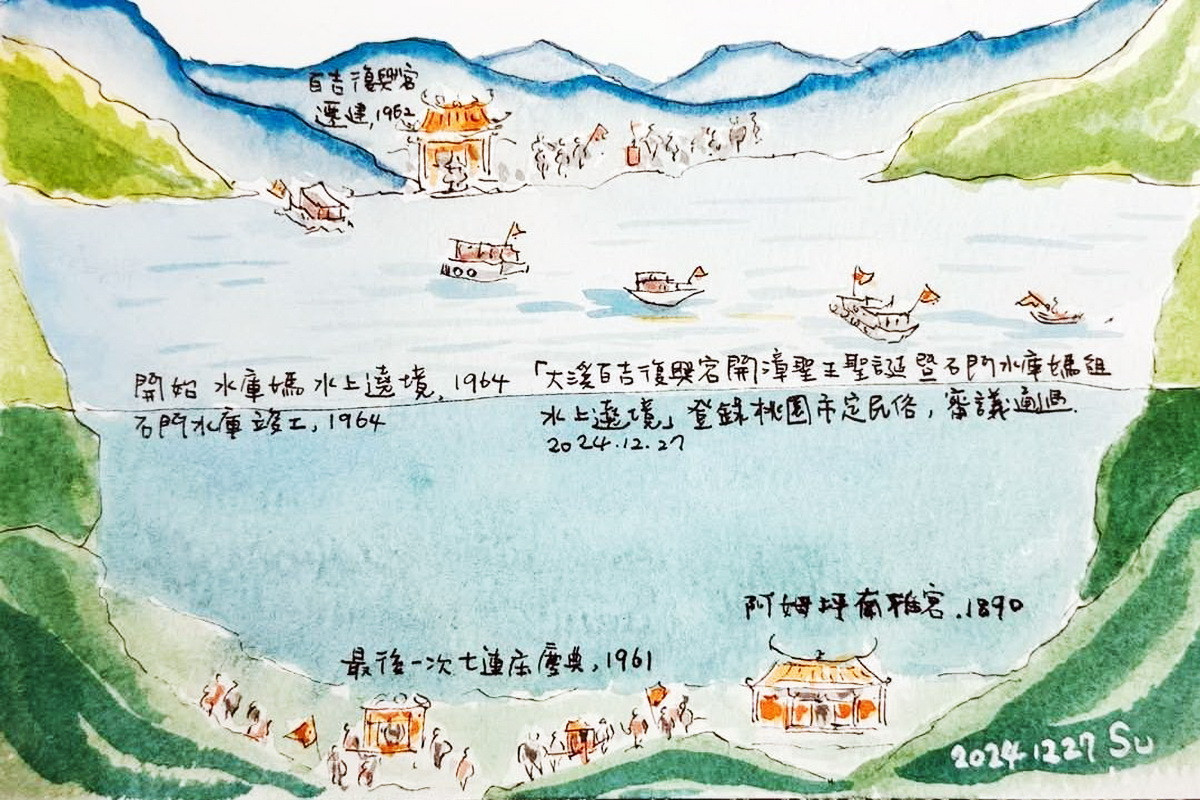 百吉復興宮
遷建,1962
開始 水庫媽 水上遶境, 1964
石門水庫 竣工, 1964
「大溪百吉復興宮開漳聖王聖誕暨石門水庫媽祖
水上遶境」登錄桃園市定民俗, 審議通過.
2024.12.27
阿姆坪南雅宮.1890
最後一次七連庄慶典,1961
2024 1227 Su